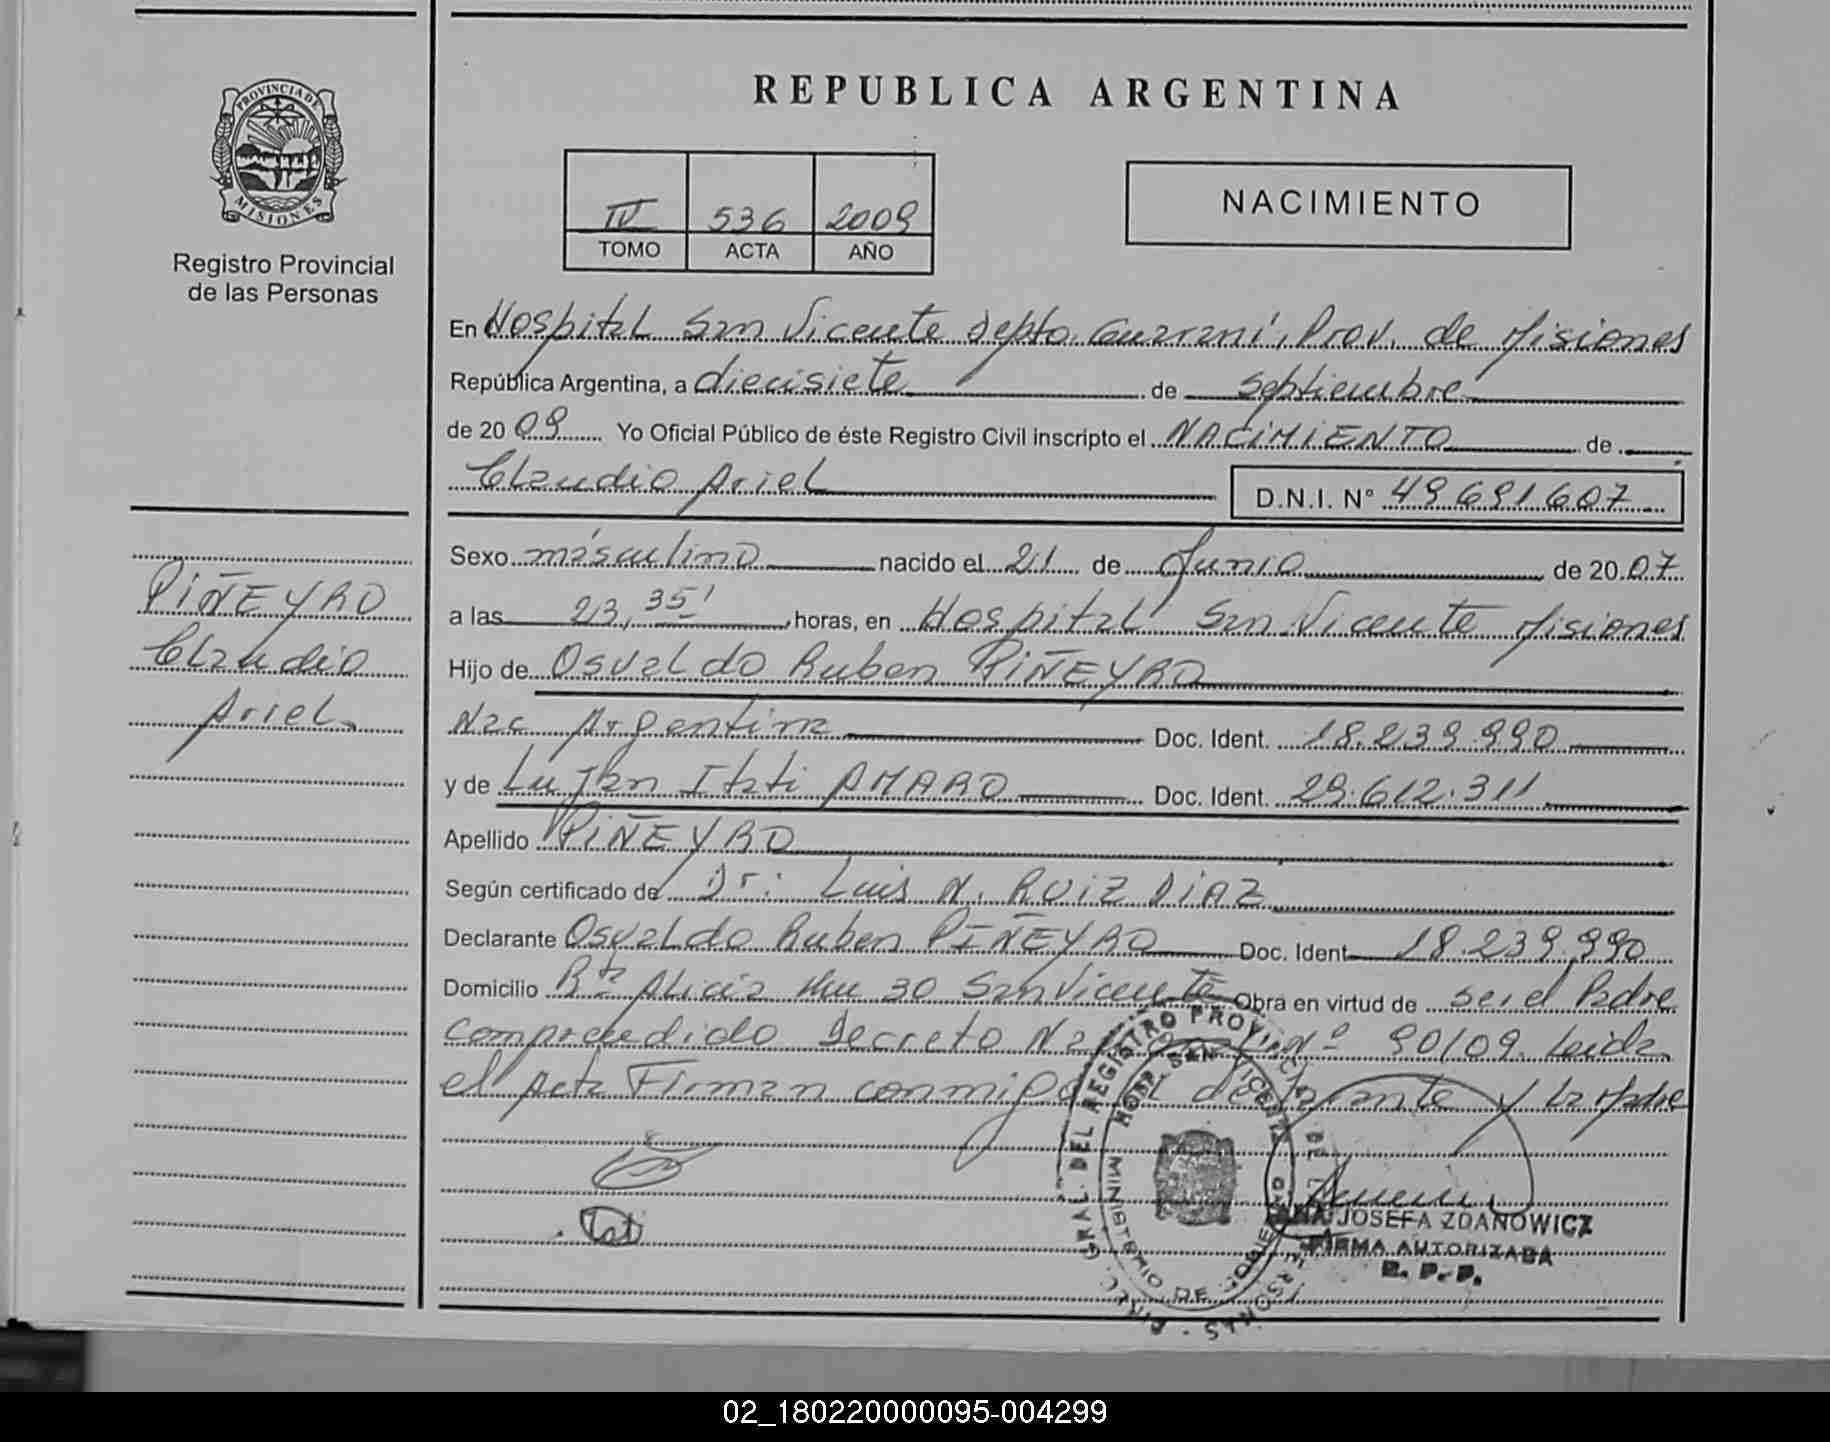 REPUBLICA ARGENTINA
PROVINCIA DE
MISIONES
Registro Provincial
de las Personas
IV 536 2009
TOMO ACTA AÑO
NACIMIENTO
En Hospital San Vicente Depto. Guaraní, Prov. de Misiones
República Argentina, a diecisiete de Septiembre
de 2009 Yo Oficial Público de éste Registro Civil inscripto el NACIMIENTO de
Claudio Ariel D.N.I. N° 49691607
Sexo masculino nacido el 21 de Junio de 2007
a las 23,35' horas, en Hospital San Vicente Misiones
Hijo de Osvaldo Ruben PIÑEYRO
Nac Argentina Doc. Ident. 18.239.990
y de Lujan Itati AMARO Doc. Ident. 29.612.311
Apellido PIÑEYRO
Según certificado de Dr: Luis N. RUIZ DIAZ
Declarante Osvaldo Ruben PIÑEYRO Doc. Ident 18.239.990
Domicilio Bta Alicia Km 30 San Vicente Obra en virtud de ser el Padre
comprendido Decreto Nº 90/09. Leida
el Acta Firman conmigo el y la Madre
PIÑEYRO
Claudio
Ariel
JOSEFA ZDANOWICZ
FIRMA AUTORIZADA
R. P. P.
DIREC. GRAL. DEL REGISTRO PROVINCIAL DE LAS PERSONAS
HOSP. SAN VICENTE
MINISTERIO DE GOBIERNO
02_180220000095-004299